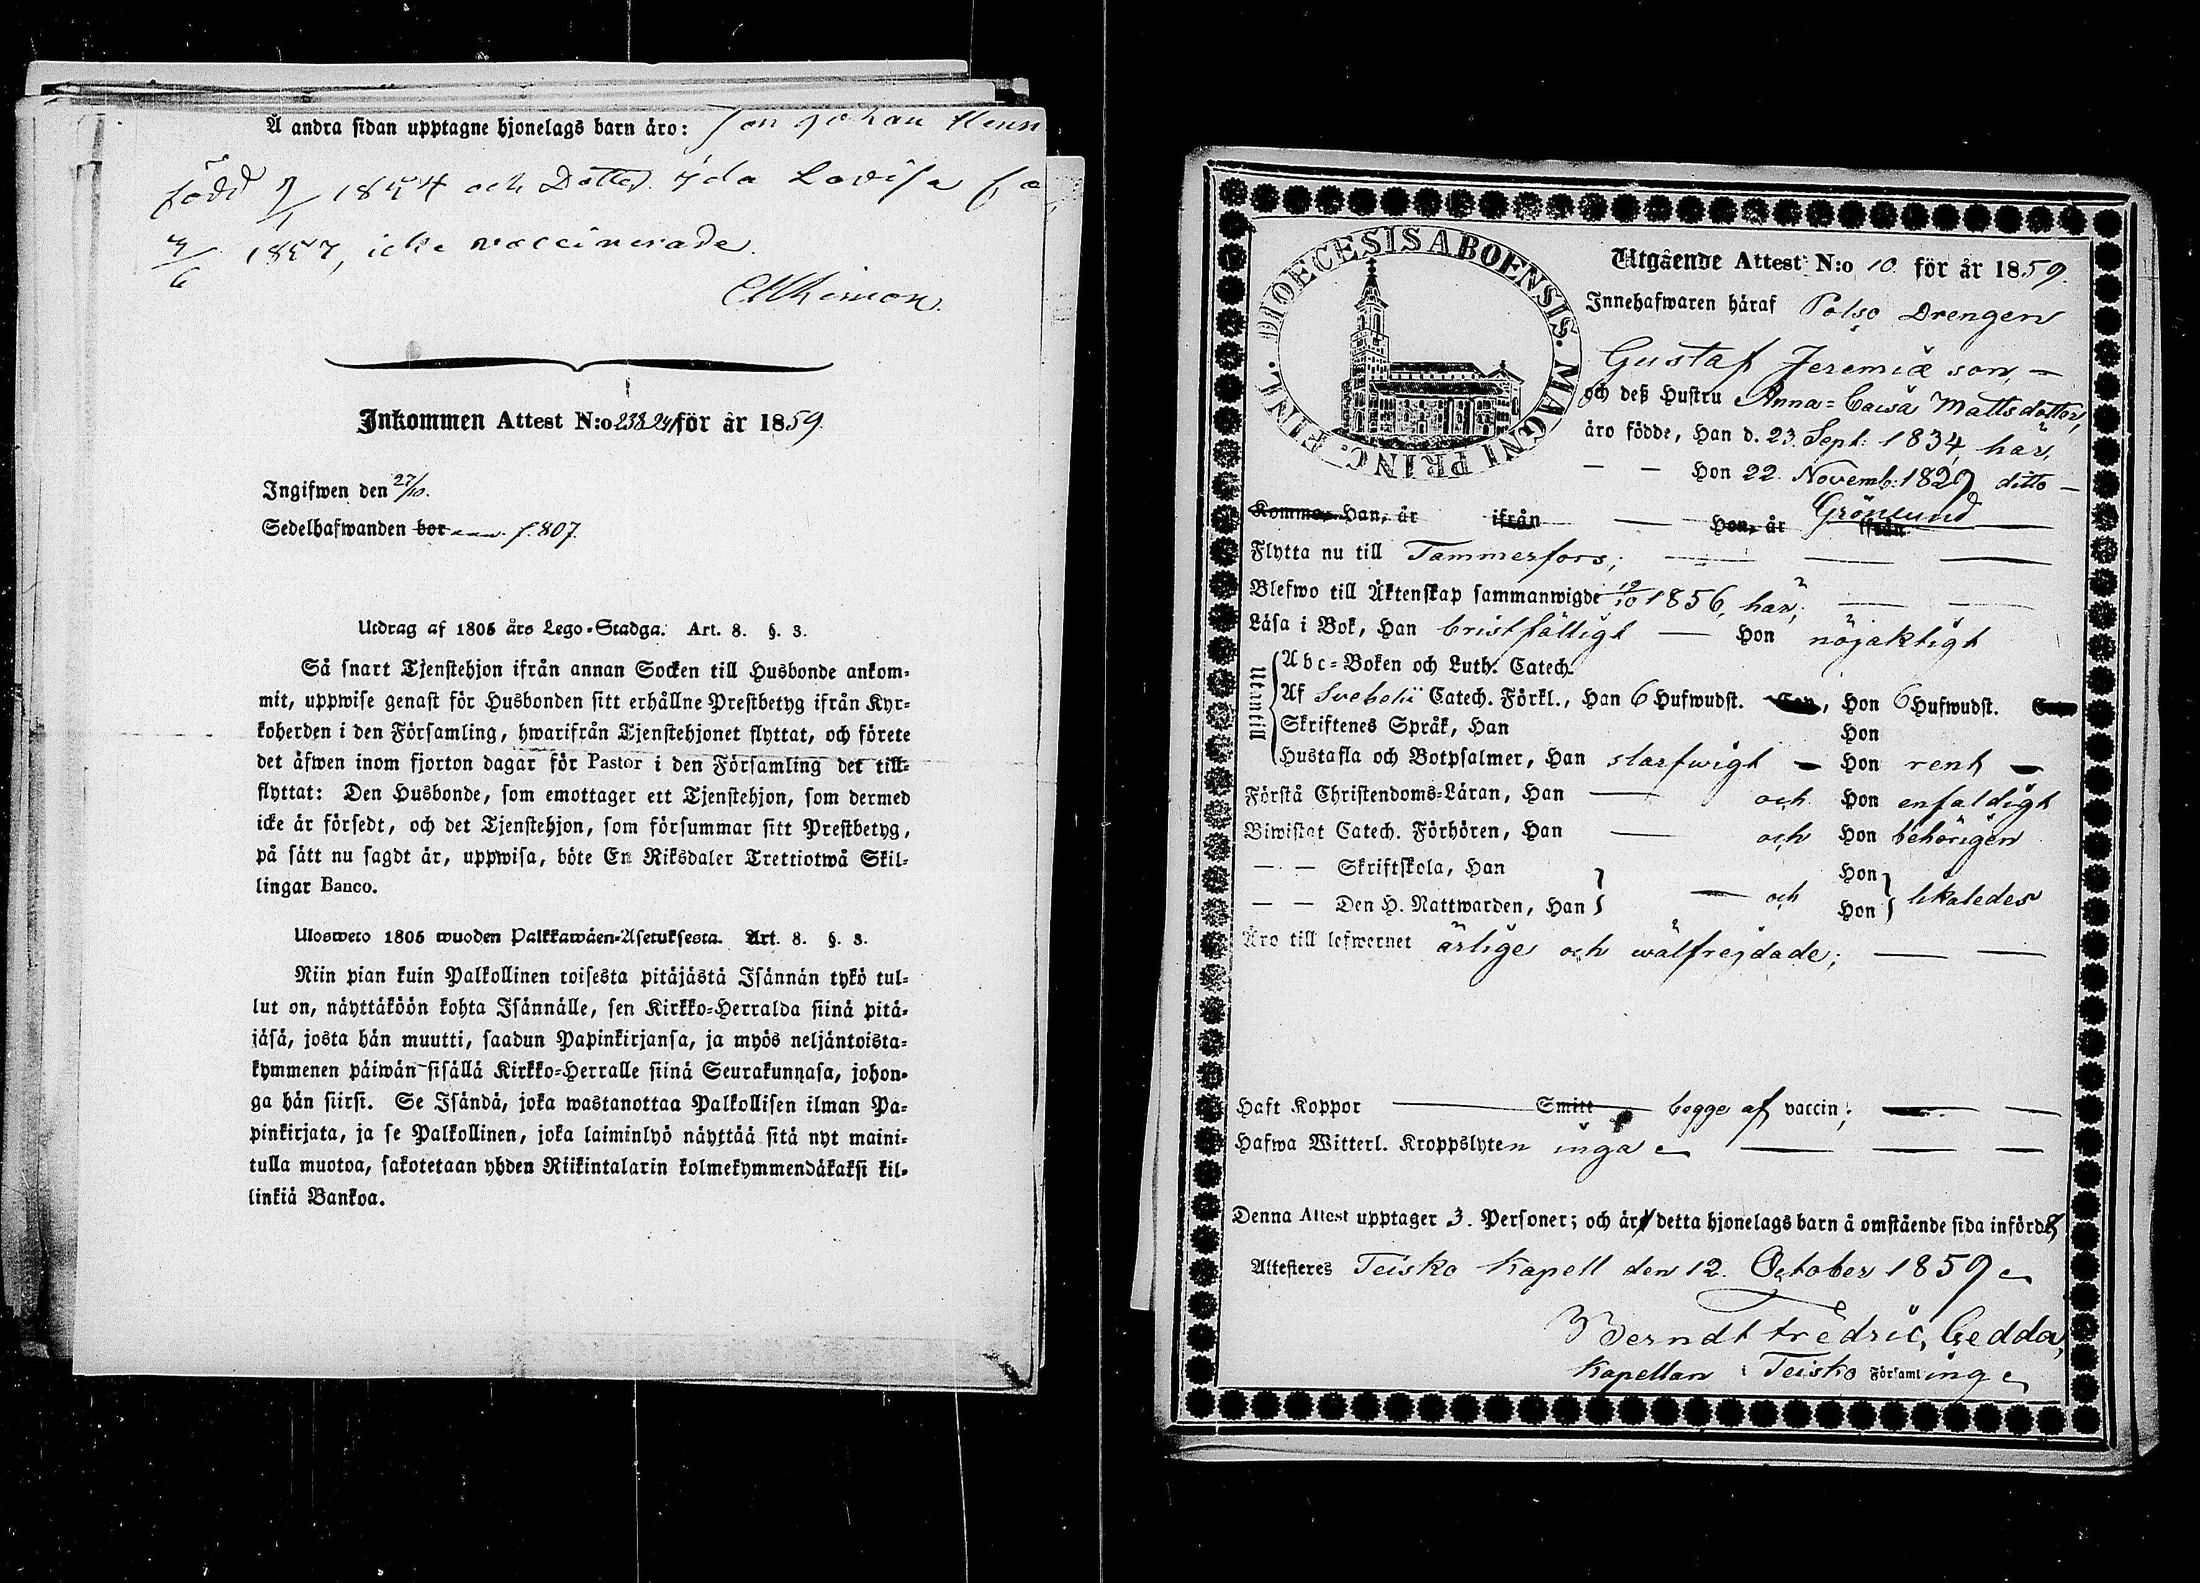 Å andra sidan upptagne hjonelags barn äro: Son Johan Henn
född 7/1 1854 och Dotter Ida Lovisa fö
4/6 1857, icke vaccinerade.
Inkommen Attest N:o 238.241 för år 1859.
Ingifwen den 27/10.
Sedelhafwanden bor f. 807.
Utdrag af 1805 års Lego-Stadga. Art. 8. §. 3.
Så snart Tjenstehjon ifrån annan Socken till Husbonde ankom-
mit, uppwise genast för Husbonden sitt erhållne Prestbetyg ifrån Kyr-
koherden i den Församling, hwarifrån Tjenstehjonet flyttat, och förete
det äfwen inom fjorton dagar för Pastor i den Församling det till-
flyttat: Den Husbonde, som emottager ett Tjenstehjon, som dermed
icke är försedt, och det Tjenstehjon, som försummar sitt Prestbetyg,
på sätt nu sagdt är, uppwisa, böte En Riksdaler Trettiotwå Skil-
lingar Banco.
Ulosweto 1805 wuoden Palkkawäen-Asetuksesta. Art. 8. §. 3.
Niin pian kuin Palkollinen toisesta pitäjästä Isännän tykö tul-
lut on, näyttäköön kohta Isännälle, sen Kirkko-Herralda siinä pitä-
jäsä, josta hän muutti, saadun Papinkirjansa, ja myös neljäntoista-
kymmenen päiwän sisällä Kirkko-Herralle siinä Seurakunnasa, johon-
ga hän siirsi. Se Isändä, joka wastanottaa Palkollisen ilman Pa-
pinkirjata, ja se Palkollinen, joka laiminlyö näyttää sitä nyt maini-
tulla muotoa, sakotetaan yhden Riikintalarin kolmekymmendäkaksi kil-
linkiä Bankoa.
DIOECESIS ABOENSIS. MAGNI PRINC. FINL.
Utgående Attest N:o 10. för år 1859.
Innehafwaren häraf Polso Drengen
Gustaf Jeremiæ son, —
och deß Hustru Anna-Caisa Mattsdotter,
äro födde, Han d. 23. Sept. 1834, här,
— — Hon 22. Novemb. 1829 ditto —
Grönlund
Komma, Han, år ifrån — Hon, år ifrån —
Flytta nu till Tammerfors; — — —
Blefwo till Äktenskap sammanwigde 19/10 1856, här; — —
Läsa i Bok, Han bristfälligt — Hon nöjaktigt
Utantill
Abc-Boken och Luth. Catech.
Af Svebelii Catech. Förkl., Han 6 Hufwudst. , Hon 6 Hufwudst.
Skriftenes Språk, Han Hon
Hustafla och Botpsalmer, Han slarfwigt — Hon rent —
Förstå Christendoms-Läran, Han — och Hon enfaldigt
Biwistat Catech. Förhören, Han — och Hon behörigen
— — Skriftskola, Han Hon
— — Den H. Nattwarden, Han — och Hon likaledes
Äro till lefwernet ärlige och wälfrejdade; — —
Haft Koppor — Smitt begge af vaccin; — —
Hafwa Witterl. Kroppslyten inga — — —
Denna Attest upptager 3. Personer; och är detta hjonelags barn å omstående sida införde
Attesteres Teisko Kapell den 12. October 1859
Berndt Fredric Gedda,
Kapellan i Teisko Församling